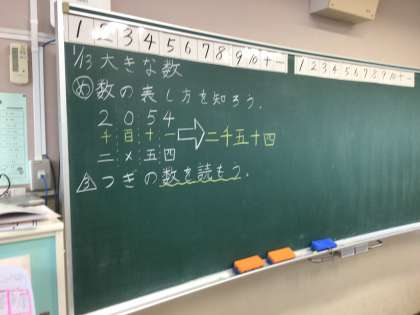 1 2 3 4 5 6 7 8 9 10 十 一
1 2 3 4 5 6 7 8 9 10 十 一
1/13 大きな数
め 数の表し方を知ろう.
2 0 5 4
千 百 十 一 ⇨ 二千五十四
二 × 五 四
3 つぎの数を読もう.